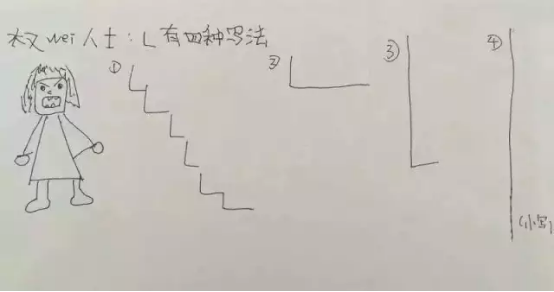 权wei人士：L有四种写法
① ② ③ ④
(小写)